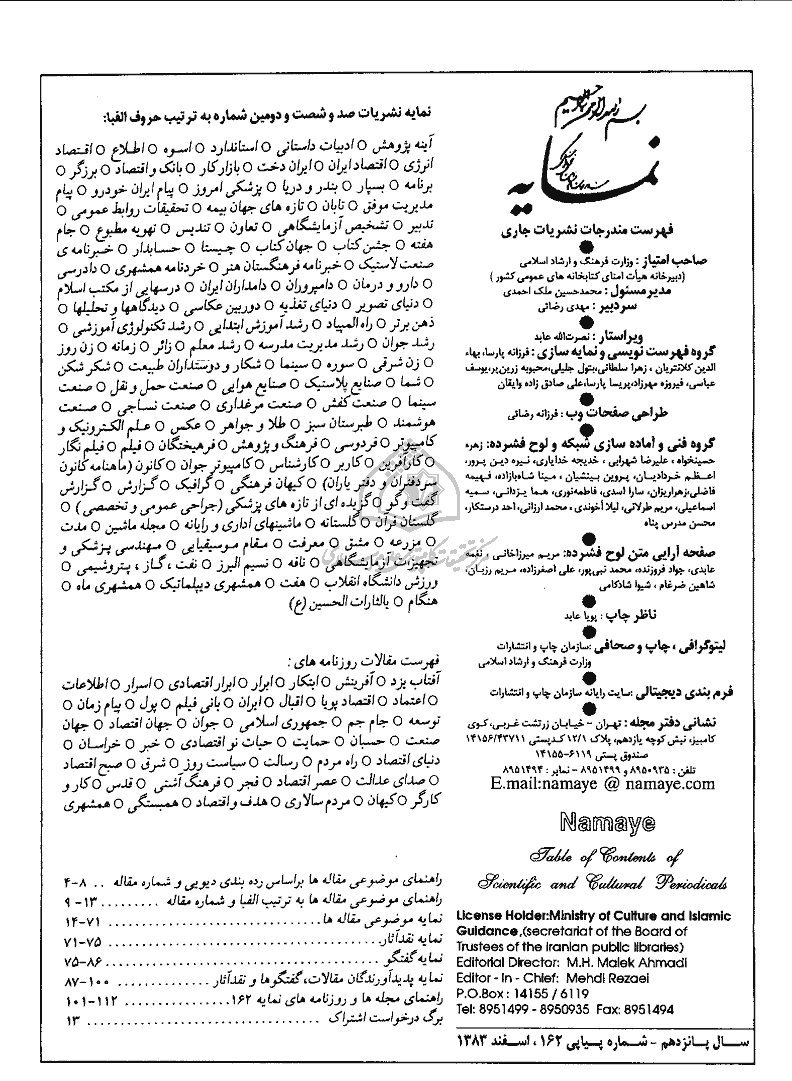 بسم الله الرحمن الرحیم
نمایه
فهرست مندرجات نشریات جاری
صاحب امتیاز : وزارت فرهنگ و ارشاد اسلامی
(دبیرخانه هیأت امنای کتابخانه های عمومی کشور )
مدیر مسئول : محمدحسین ملک احمدی
سردبیر : مهدی رضائی
ویراستار : نصرت‌الله عابد
گروه فهرست نویسی و نمایه سازی : فرزانه پارسا، بهاء
الدین کلانتریان ، زهرا سلطانی،بتول جلیلی،محبوبه زرین‌پر،یوسف
عباسی، فیروزه مهرزاد،پریسا پارسا،علی صادق زاده وایقان
طراحی صفحات وب : فرزانه رضائی
گروه فنی و آماده سازی شبکه و لوح فشرده: زهره
حسینخواه ، علیرضا شهرابی ، خدیجه خدایاری، نیره دین پرور،
اعـظـم خـردادیـان، پـرویـن بـیـنـشیـان ، مـیـنا شـاه‌بازاده، فـهیـمه
فاضلی،زهرا‌یزان، سارا اسدی، فاطمه‌نوری، هـما یـزدانـی، سمیه
اسماعیلی، مریم طرلانی، لیلا آخوندی ، محمد ارزانی، احد درستکار،
محسن مدرس پناه
صفحه آرایی متن لوح فشرده: مریم میرزاخانی ، نغمه
عابدی، جواد فروزنده، محمد نبی‌پور، علی اصغرزاده، مـریـم رزبـان،
شاهین ضرغام ، شیوا شادکامی
ناظر چاپ : پویا عابد
لیتوگرافی ، چاپ و صحافی :سازمان چاپ و انتشارات
وزارت فرهنگ و ارشاد اسلامی
فرم بندی دیجیتالی :سایت رایانه سازمان چاپ و انتشارات
نشانی دفتر مجله : تهران – خیـابـان زرتشت غربـی، کـوی
کامبیز، نبش کوچه یازدهم، پلاک ۱۲/۱ کـدپستی ۱۴۱۵۶/۴۳۷۱۱
صندوق پستی ۶۱۱۹–۱۴۱۵۵
تلفن : ۸۹۵۰۹۳۵ و ۸۹۵۱۴۹۹ – نمابر : ۸۹۵۱۴۹۴
E.mail:namaye @ namaye.com
Namaye
Table of Contents of
Scientific and Cultural Periodicals
License Holder:Ministry of Culture and Islamic
Guidance,(secretariat of the Board of
Trustees of the Iranian public libraries)
Editorial Director: M.H. Malek Ahmadi
Editor - In - Chief: Mehdi Rezaei
P.O.Box : 14155 / 6119
Tel: 8951499 - 8950935 Fax: 8951494
سـال پـانزدهم – شـماره پـیاپی ۱۶۲ ، اسـفند ۱۳۸۳
نمایه نشریات صد و شصت و دومین شماره به ترتیب حروف الفبا:
آینه پژوهش ○ ادبیات داستانی ○ استاندارد ○ اسـوه ○ اطـلاع ○ اقـتصاد
انرژی ○ اقتصاد ایران ○ ایران دخت ○ بازار کار ○ بانک و اقتصاد ○ برزگر ○
برنامه ○ بسپار ○ بندر و دریا ○ پزشکی امروز ○ پیام ایران خودرو ○ پیام
مدیریت موفق ○ تابان ○ تازه های جهان بیمه ○ تحقیقات روابط عمومی ○
تدبیر ○ تشخیص آزمایشگاهی ○ تعاون ○ تندیس ○ تهویه مطبوع ○ جام
هفته ○ جشن کتاب ○ جهان کتاب ○ چیستا ○ حسابدار ○ خبرنامه ی
صنعت لاستیک ○ خبرنامه فرهنگستان هنر ○ خردنامه همشهری ○ دادرسی
○ دارو و درمان ○ دامپروران ○ دامداران ایران ○ درسهایی از مکتب اسلام
○ دنیای تصویر ○ دنیای تغذیه ○ دوربین عکاسی ○ دیدگاهها و تحلیلها ○
ذهن برتر ○ راه المپیاد ○ رشد آموزش ابتدایی ○ رشد تکنولوژی آموزشی ○
رشد جوان ○ رشد مدیریت مدرسه ○ رشد معلم ○ زائر ○ زمانه ○ زن روز
○ زن شرقی ○ سوره ○ سینما ○ شکار و دوستداران طبیعت ○ شکر شکن
○ شما ○ صنایع پلاستیک ○ صنایع هوایی ○ صنعت حمل و نقل ○ صنعت
سینما ○ صنعت کفش ○ صنعت مرغداری ○ صنعت نساجی ○ صنعت
هوشمند ○ طبرستان سبز ○ طلا و جواهر ○ عکس ○ عـلم الکترونیک و
کامپیوتر ○ فردوسی ○ فرهنگ و پژوهش ○ فرهیختگان ○ فیلم ○ فیلم نگار
○ کارآفرین ○ کاربر ○ کارشناس ○ کامپیوتر جوان ○ کانون (ماهنامه کانون
سردفتران و دفتر یاران) ○ کیهان فرهنگی ○ گرافیک ○ گزارش ○ گزارش
گفت وگو ○ گزیده ای از تازه های پزشکی (جراحی عمومی و تخصصی ) ○
گلستان قرآن ○ گلستانه ○ ماشینهای اداری و رایانه ○ مجله ماشین ○ مدت
○ مزرعه ○ مشق ○ معرفت ○ مـقام موسیقیایی ○ مهندسی پزشکی و
تجهیزات آزمایشگاهی ○ نافه ○ نسیم البرز ○ نفت ، گـاز ، پـتروشیمی ○
ورزش دانشگاه انقلاب ○ هفت ○ همشهری دیپلماتیک ○ همشهری ماه ○
هنگام ○ یالثارات الحسین (ع)
فهرست مقالات روزنامه های :
آفتاب یزد ○ آفرینش ○ ابتکار ○ ابرار ○ ابرار اقتصادی ○ اسرار ○ اطلاعات
○ اعتماد ○ اقتصاد پویا ○ اقبال ○ ایران ○ بانی فیلم ○ پول ○ پیام زمان ○
توسعه ○ جام جم ○ جمهوری اسلامی ○ جوان ○ جهان اقتصاد ○ جهان
صنعت ○ حسبان ○ حمایت ○ حیات نو اقتصادی ○ خبر ○ خراسان ○
دنیای اقتصاد ○ راه مردم ○ رسالت ○ سیاست روز ○ شرق ○ صبح اقتصاد
○ صدای عدالت ○ عصر اقتصاد ○ فجر ○ فرهنگ آشتی ○ قدس ○ کار و
کارگر ○ کیهان ○ مردم سالاری ○ هدف و اقتصاد ○ همبستگی ○ همشهری
راهنمای موضوعی مقاله ها براساس رده بندی دیویی و شماره مقاله .. ۸–۴
راهنمای موضوعی مقاله ها به ترتیب الفبا و شماره مقاله ......... ۱۳– ۹
نمایه موضوعی مقاله ها............................ ۷۱–۱۴
نمایه نقدآثار.................................. ۷۵–۷۱
نمایه گفتگو .................................. ۸۶–۷۵
نمایه پدیدآورندگان مقالات، گفتگوها و نقدآثار.............. ۱۰۰–۸۷
راهنمای مجله ها و روزنامه های نمایه ۱۶۲................ ۱۱۲–۱۰۱
برگ درخواست اشتراک ........................... ۱۳